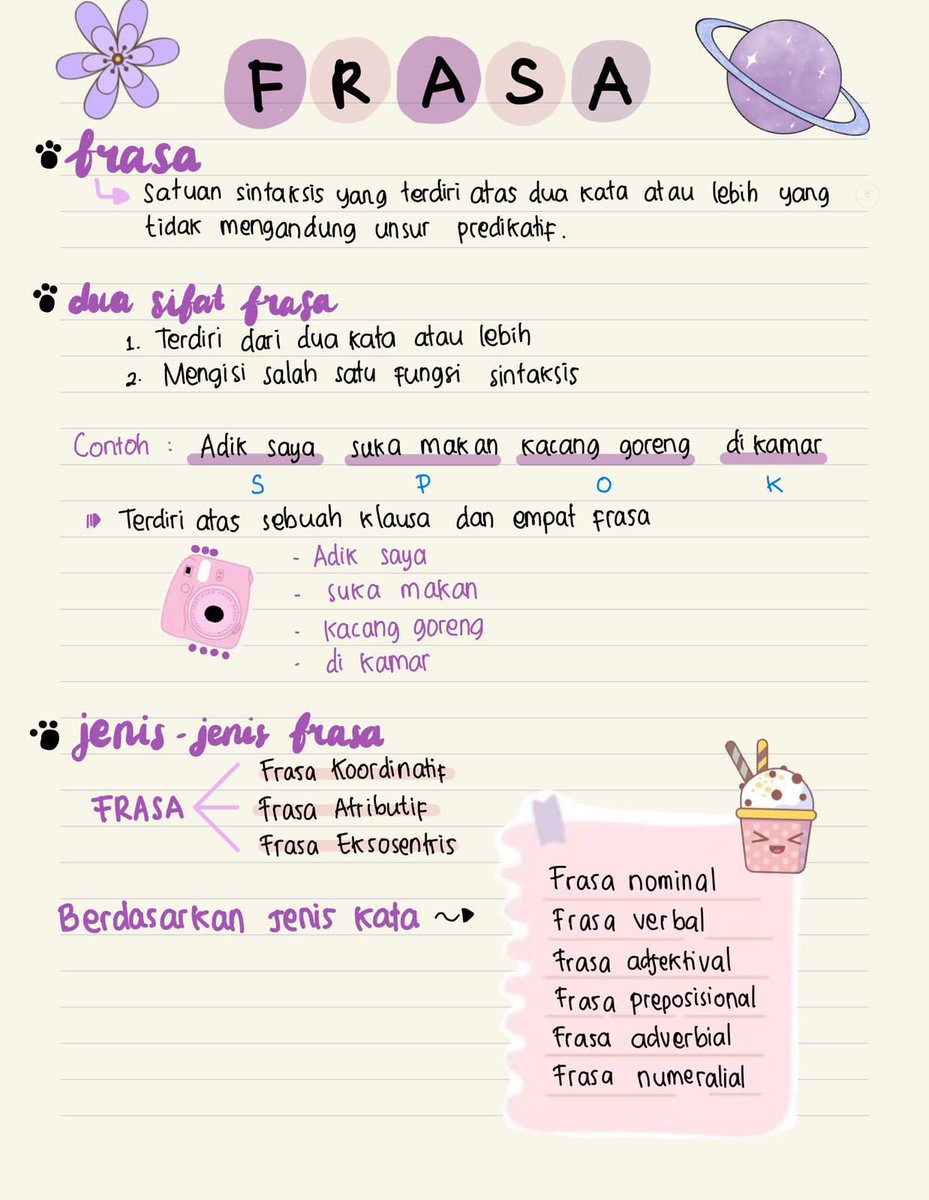 FRASA
frasa
satuan sintaksis yang terdiri atas dua kata atau lebih yang
tidak mengandung unsur predikatif.
dua sifat frasa
1. Terdiri dari dua kata atau lebih
2. Mengisi salah satu fungsi sintaksis
Contoh : Adik saya suka makan kacang goreng di kamar
S P O K
Terdiri atas sebuah klausa dan empat frasa
- Adik saya
- suka makan
- kacang goreng
- di kamar
jenis-jenis frasa
Frasa Koordinatif
FRASA Frasa Atributif
Frasa Eksosentris
Berdasarkan Jenis kata
Frasa nominal
Frasa verbal
Frasa adjektival
Frasa preposisional
Frasa adverbial
Frasa numeralial